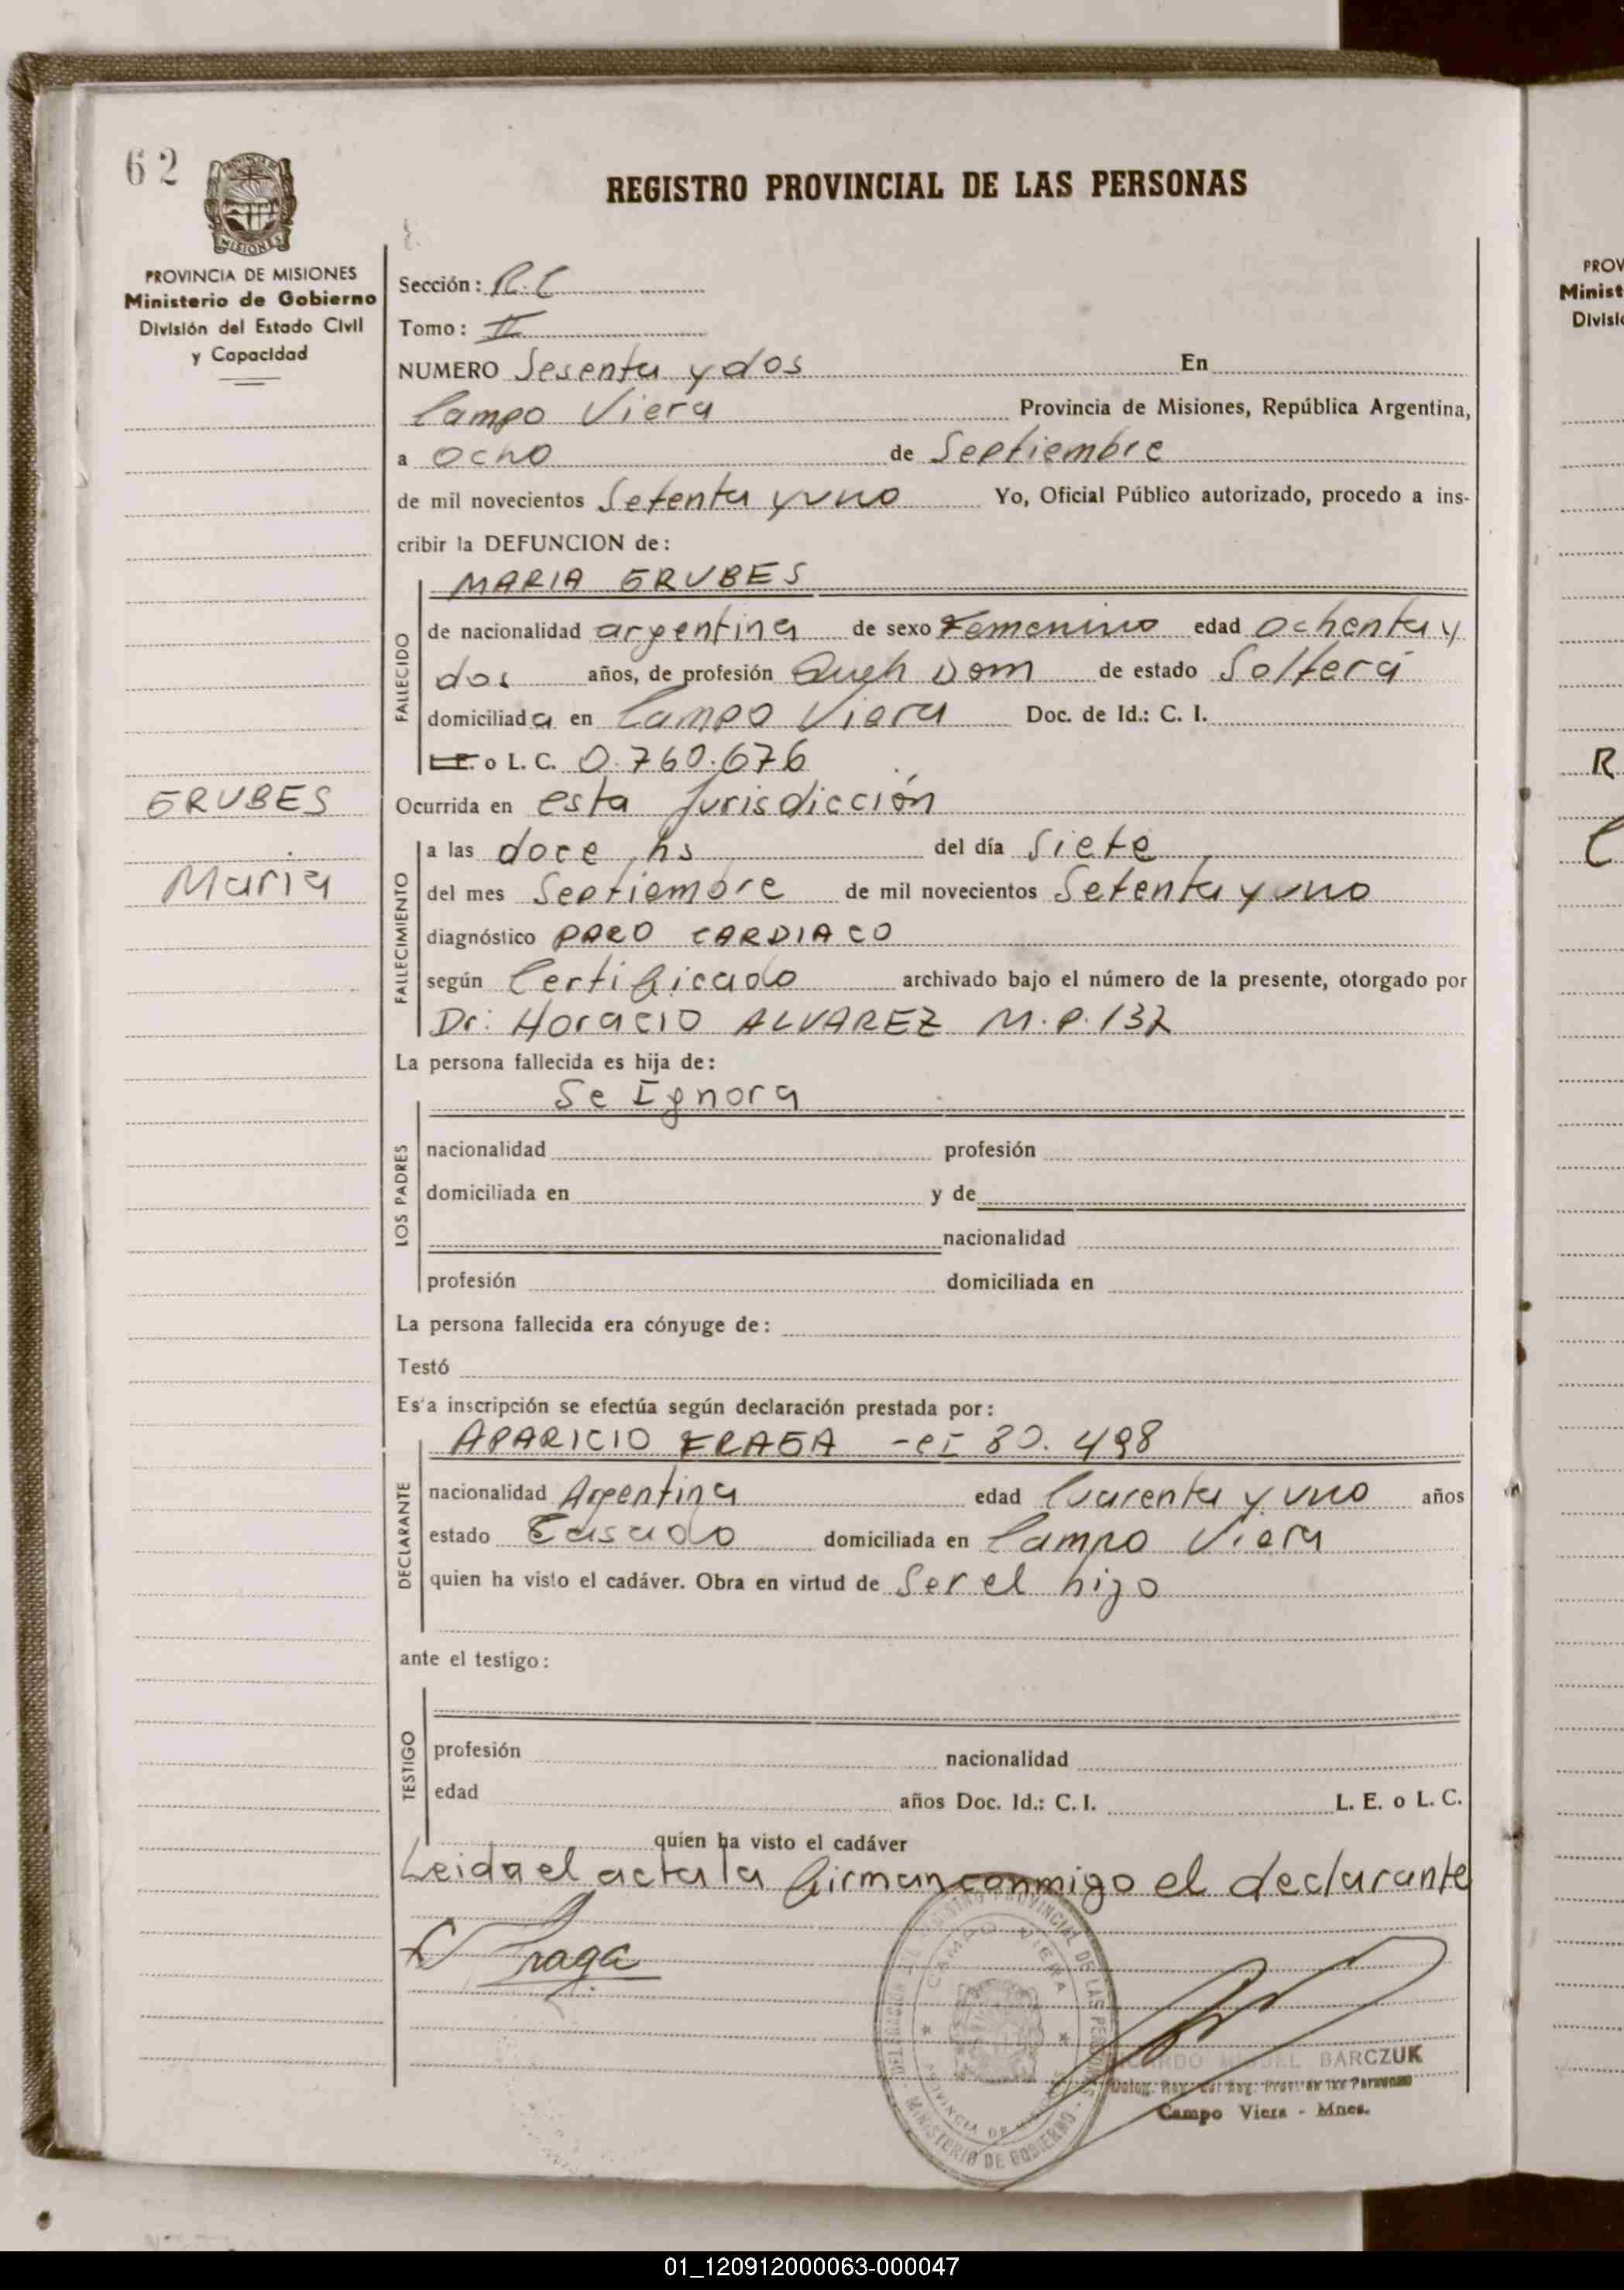 62
REGISTRO PROVINCIAL DE LAS PERSONAS
PROVINCIA DE MISIONES
Ministerio de Gobierno
División del Estado Civil
y Capacidad
Sección: R.C
Tomo: II
NUMERO Sesenta y dos En
Campo Viera Provincia de Misiones, República Argentina,
a ocho de Septiembre
de mil novecientos Setenta y uno Yo, Oficial Público autorizado, procedo a ins-
cribir la DEFUNCION de:
FALLECIDO
MARIA GRUBES
de nacionalidad argentina de sexo Femenino edad ochenta y
dos años, de profesión Queh Dom de estado Soltera
domiciliada en Campo Viera Doc. de Id.: C. I.
L.E. o L. C. 0.760.676
GRUBES
Maria
Ocurrida en esta Jurisdicción
FALLECIMIENTO
a las doce hs del día Siete
del mes Septiembre de mil novecientos Setenta y uno
diagnóstico PARO CARDIACO
según Certificado archivado bajo el número de la presente, otorgado por
Dr: Horacio ALVAREZ M.P. 132
La persona fallecida es hija de:
LOS PADRES
Se Ignora
nacionalidad profesión
domiciliada en y de
nacionalidad
profesión domiciliada en
La persona fallecida era cónyuge de:
Testó
Es'a inscripción se efectúa según declaración prestada por:
DECLARANTE
APARICIO FRAGA - CI 80.498
nacionalidad Argentina edad Cuarenta y uno años
estado Casado domiciliada en Campo Viera
quien ha visto el cadáver. Obra en virtud de Ser el hijo
ante el testigo:
TESTIGO
profesión nacionalidad
edad años Doc. Id.: C. I. L. E. o L. C.
quien ha visto el cadáver
Leida el acta la firman conmigo el declarante
Fraga
CAMPO VIERA
MINISTERIO DE GOBIERNO
RICARDO MIGUEL BARCZUK
Campo Viera - Mnes.
PROV
Minist
Divisi
R
01_120912000063-000047